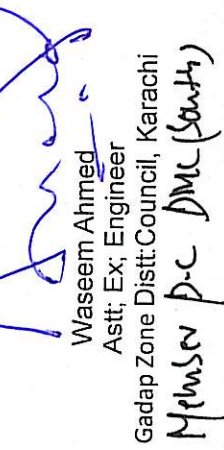 Waseem Ahmed
Astt; Ex; Engineer
Gadap Zone Distt:Council, Karachi
Member P.C DMC (South)